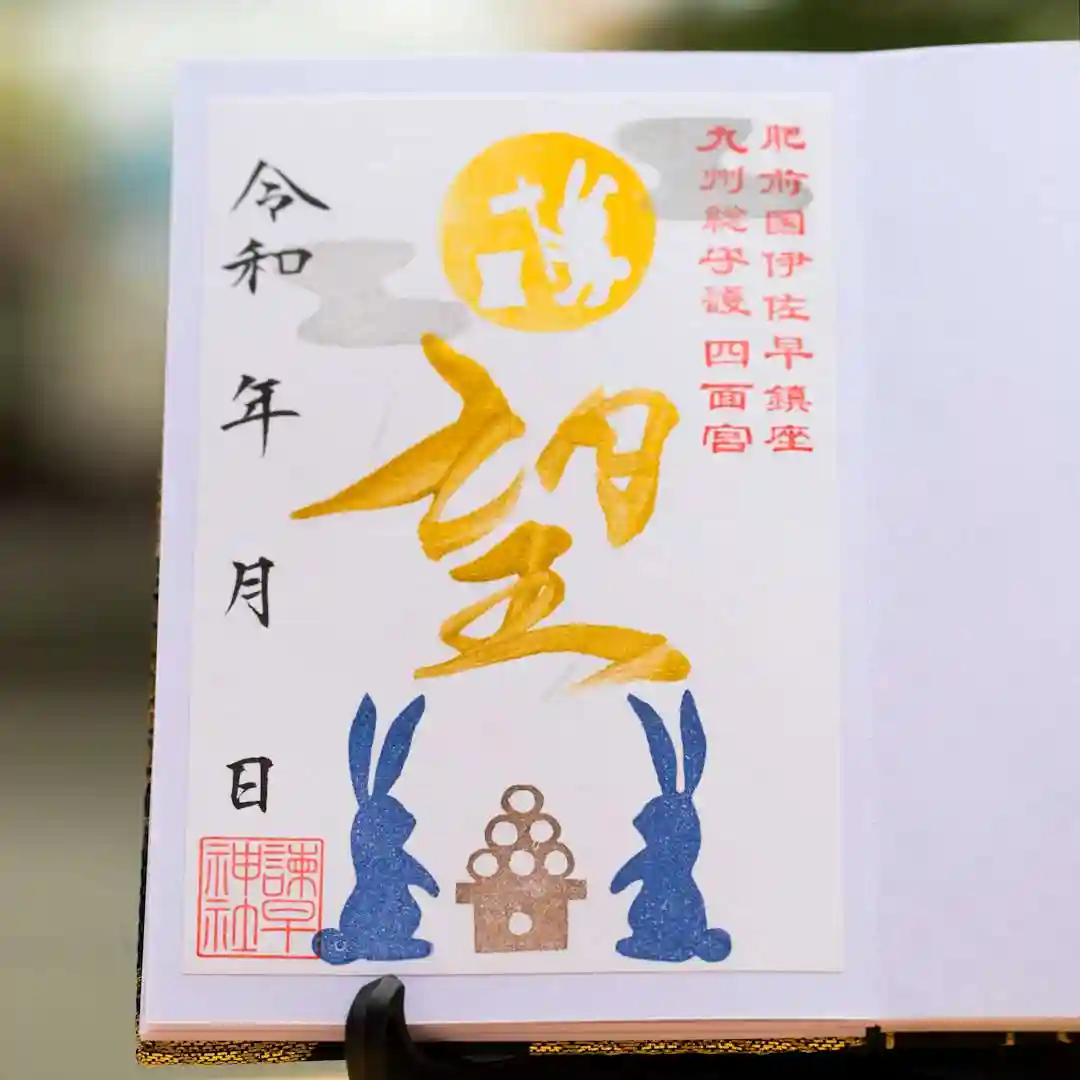 肥前国伊佐早鎮座
九州総守護 四面宮
望
令和 年 月 日
諫早
神社